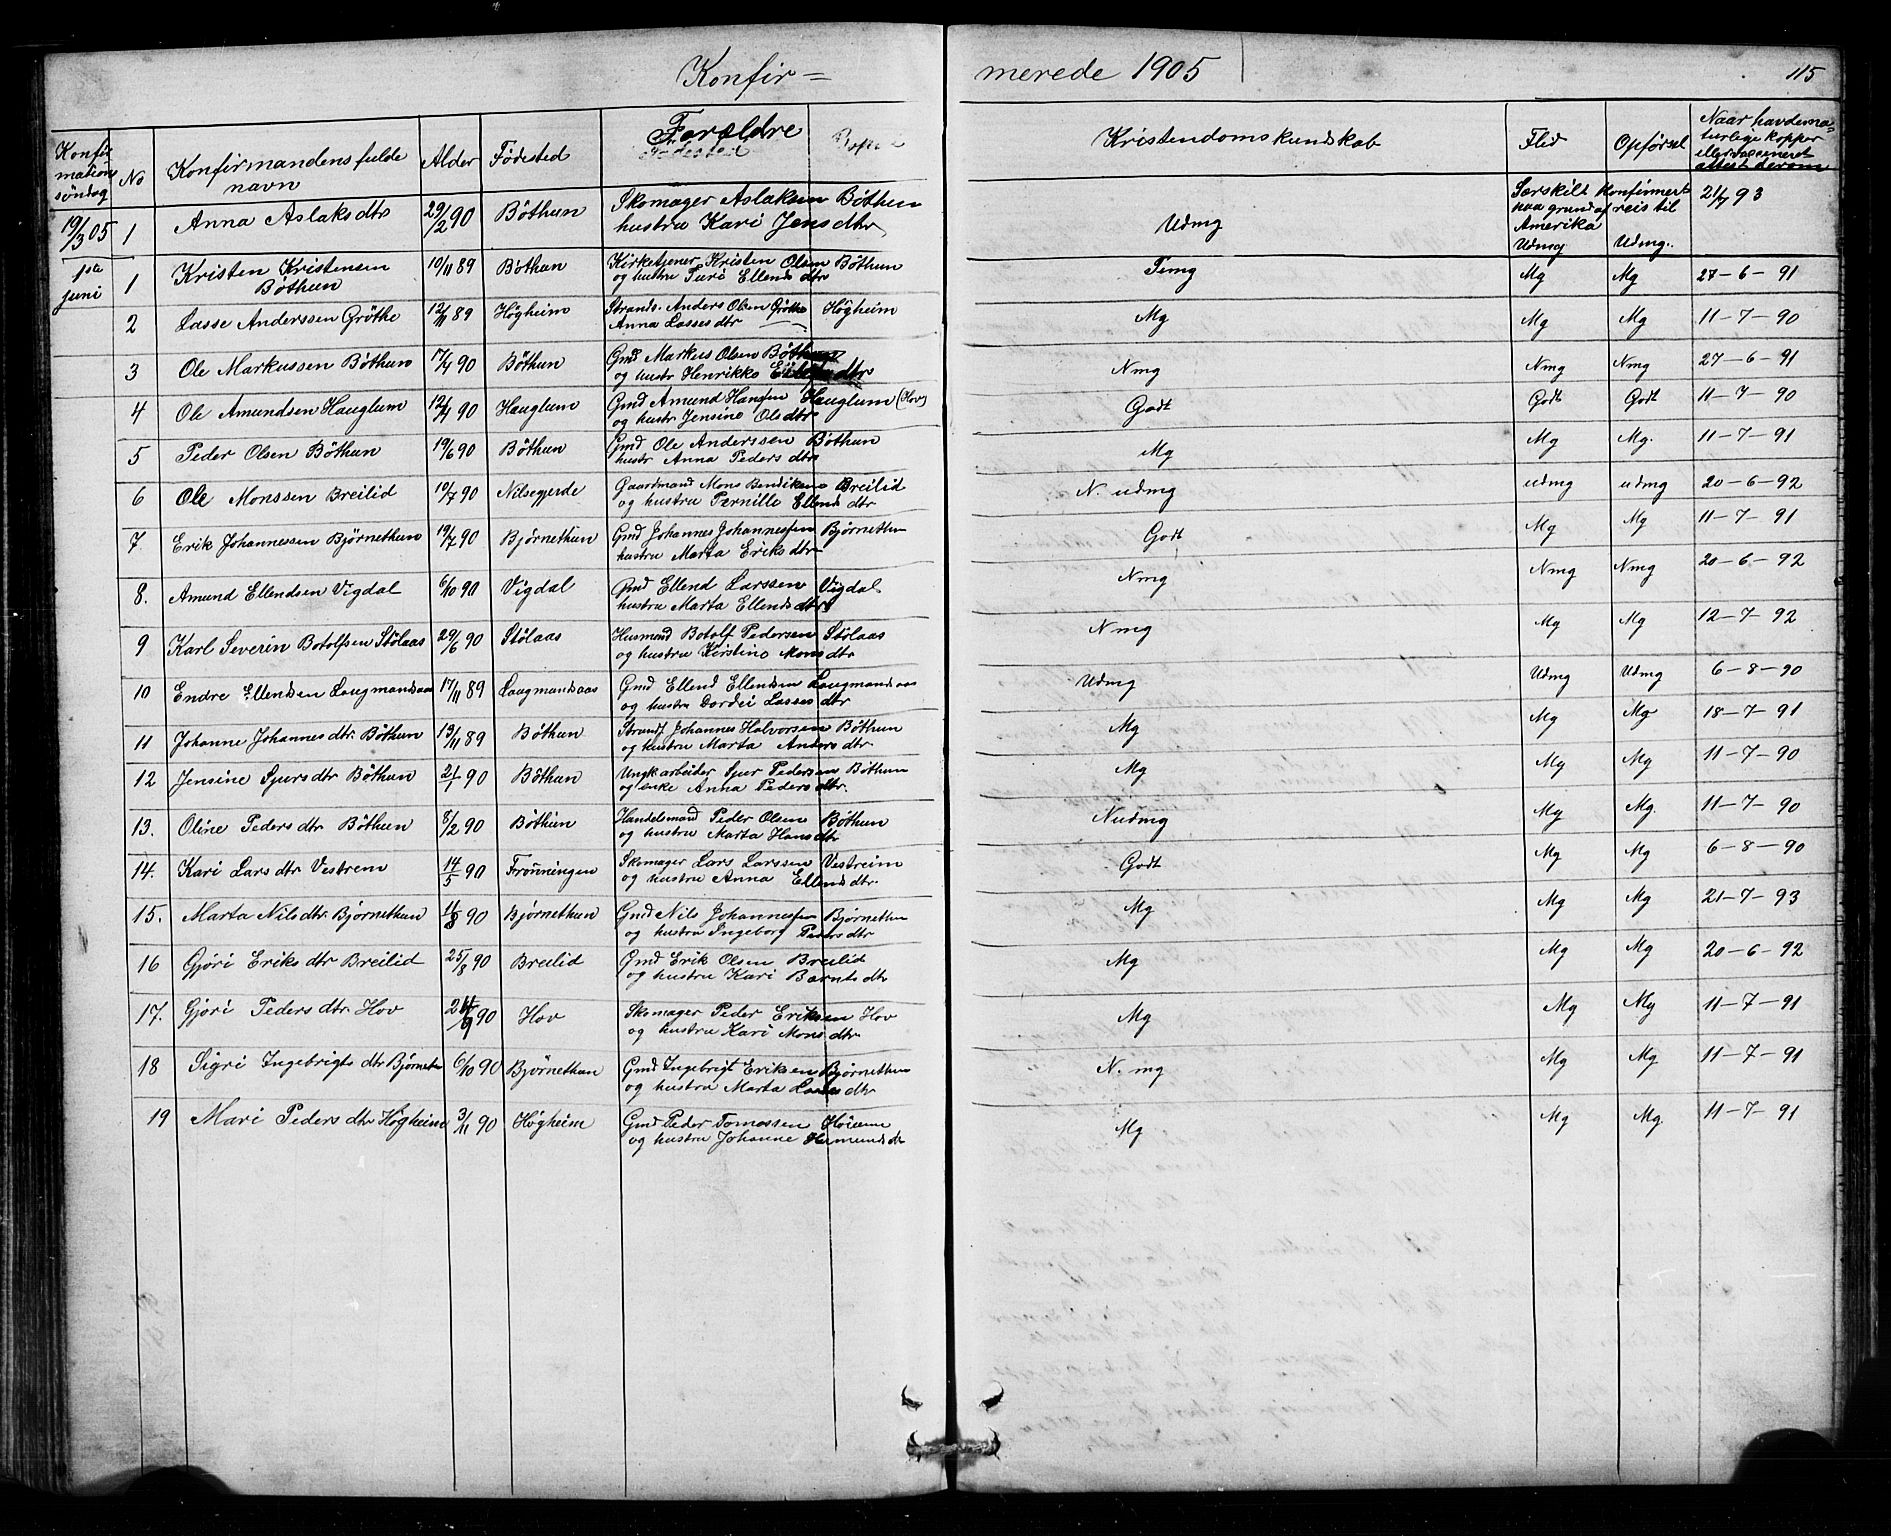 Konfir=
merede 1905
115
Konfir
mations
søndag
No
Konfirmandens fulde
navn
Alder
Fødested
Forældre
Kristendomskundskab
Flid
Opførsel
Naar havde na=
turlige kopper
eller vaccineret
attest derom
19/3 05 1 Anna Aslaksdtr 29/2 90 Bøthun Skomager Aslaksen Bøthun
hustru Kari Jensdtr
Udmg
Særskilt konfirmert
paa grund af reis til
Amerika
Udmg Udmg. 21/7 93
1ste
juni
1 Kristen Kristensen
Bøthun 10/11 89 Bøthun Kirketjener Kristen Olsen Bøthun
og hustru Turi Ellendsdtr Temg Mg Mg 27-6-91
2 Lasse Anderssen Grøthe 12/11 89 Høgheim Strands. Anders Olsen Grøthe Høgheim
Anna Lassesdtr Mg Mg Mg 11-7-90
3 Ole Markussen Bøthun 17/4 90 Bøthun Gmd Markus Olsen Bøthun
og hustr Henrikke dtr Nmg Nmg Nmg 27-6-91
4 Ole Amundsen Hauglum 12/4 90 Hauglum Gmd Amund Hansen Hauglum (Hov)
og hustr Jensine Olsdtr Godt Godt Godt 11-7-90
5 Peder Olsen Bøthun 19/6 90 Bøthun Gmd Ole Anderssen Bøthun
hustr Anna Pedersdtr Mg Mg Mg. 11-7-91
6 Ole Monssen Breilid 10/7 90 Nilsegjerde Gaardmand Mons Bendiksen Breilid
og hustru Pernille Ellendsdtr N. udmg udmg udmg 20-6-92
7. Erik Johannessen Bjørnethun 19/7 90 Bjørnethun Gmd Johannes Johannessen Bjørnethun
hustru Marta Eriksdtr Godt Mg Mg 11-7-91
8. Amund Ellendsen Vigdal 6/10 90 Vigdal Gmd Ellend Larssen Vigdal
hustru Marta Ellendsdtr Nmg Nmg Nmg 20-6-92
9 Karl Severin Botolfsen Stølaas 29/6 90 Stølaas Husmand Botolf Pedersen Stølaas
og hustru Kirstine Monsdtr Nmg Mg Mg 12-7-92
10 Endre Ellendsen Laugmandsaas 17/11 89 Laugmandsaas Gmd Ellend Ellendsen Laugmandsaas
og hustru Dordei Lassesdtr Udmg Udmg Udmg 6-8-90
11 Johanne Johannesdtr. Bøthun 13/11 89 Bøthun Strands Johannes Halvorsen Bøthun
og hustru Marta Andersdtr. Mg Mg Mg 18-7-91
12 Jensine Sjursdtr Bøthun 2/1 90 Bøthun Ungk arbeider Sjur Pedersen Bøthun
og enke Anna Pedersdtr. Mg Mg Mg 11-7-90
13. Oline Pedersdtr Bøthun 8/2 90 Bøthun Handelsmand Peder Olsen Bøthun
og hustru Marta Hansdtr Nudmg Mg Mg. 11-7-90
14. Kari Larsdtr Vestrem 14/5 90 Frønningen Skomager Lars Larssen Vestreim
og hustru Anna Ellendsdtr. Godt Mg Mg 6-8-90
15. Marta Nilsdtr. Bjørnethun 11/8 90 Bjørnethun Gmd Nils Johannessen Bjørnethun
og hustru Ingeborg Pedersdtr Mg Mg Mg 21-7-93
16 Gjøri Eriksdtr Breilid 25/8 90 Breilid Gmd Erik Olsen Breilid
og hustru Kari Berntsdtr Mg Mg Mg 20-6-92
17. Gjøri Pedersdtr Hov 24/9 90 Hov Skomager Peder Eriksen Hov
og hustru Kari Monsdtr Mg Mg Mg 11-7-91
18 Sigri Ingebrigtsdtr Bjørnetun 6/10 90 Bjørnethun Gmd Ingebrigt Eriksen Bjørnethun
og hustru Marta Lassesdtr N. mg Mg Mg 11-7-91
19 Mari Pedersdtr Høgheim 3/11 90 Høgheim Gmd Peder Tomassen Høieme
og hustru Johanne Hermundsdtr Mg Mg Mg. 11-7-91